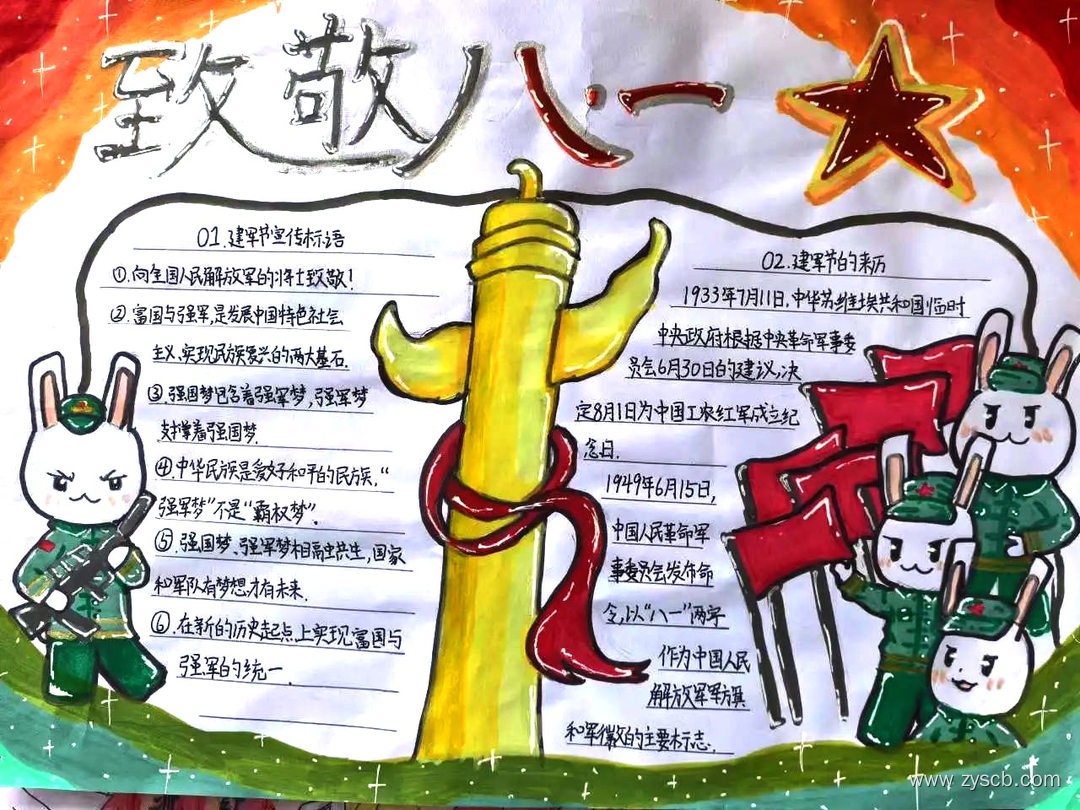 致敬八·一
01.建军节宣传标语
①.向全国人民解放军的将士致敬!
②.富国与强军,是发展中国特色社会
主义、实现民族复兴的两大基石.
③.强国梦包含着强军梦,强军梦
支撑着强国梦.
④.中华民族是爱好和平的民族,“
强军梦”不是“霸权梦”.
⑤.强国梦、强军梦相融共生,国家
和军队有梦想才有未来.
⑥.在新的历史起点上实现富国与
强军的统一.
02.建军节的来历
1933年7月11日,中华苏维埃共和国临时
中央政府根据中央革命军事委
员会6月30日的建议,决
定8月1日为中国工农红军成立纪
念日.
1949年6月15日,
中国人民革命军
事委员会发布命
令,以“八一”两字
作为中国人民
解放军军旗
和军徽的主要标志.
www.zyscb.com